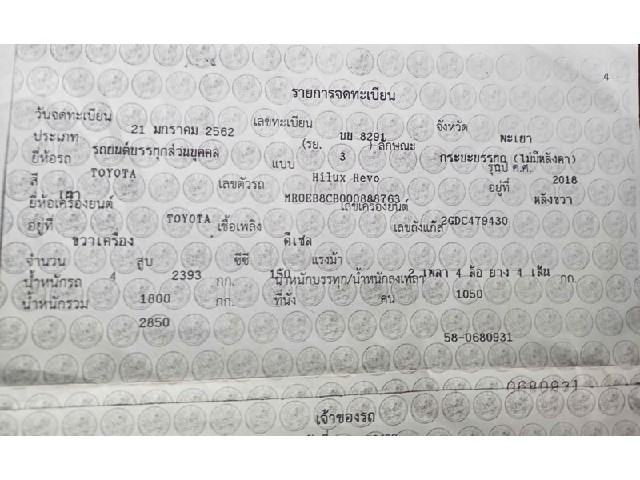 4
รายการจดทะเบียน
วันจดทะเบียน 21 มกราคม 2562 เลขทะเบียน บม 8291 จังหวัด พะเยา
ประเภท รถยนต์บรรทุกส่วนบุคคล (รย. 3 ) ลักษณะ กระบะบรรทุก (ไม่มีหลังคา)
ยี่ห้อรถ TOYOTA แบบ Hilux Revo รุ่นปี ค.ศ. 2018
สี เทา เลขตัวรถ อยู่ที่ หลังขวา
ยี่ห้อเครื่องยนต์ TOYOTA เลขเครื่องยนต์ 2GDC479430
อยู่ที่ ขวาเครื่อง เชื้อเพลิง ดีเซล เลขถังแก๊ส
จำนวน 4 สูบ 2393 ซีซี 150 แรงม้า 2 เพลา 4 ล้อ ยาง 4 เส้น
น้ำหนักรถ 1800 กก. น้ำหนักบรรทุก/น้ำหนักลงเพลา 1050 กก.
น้ำหนักรวม 2850 กก. ที่นั่ง คน
58-0680931
0680931
เจ้าของรถ